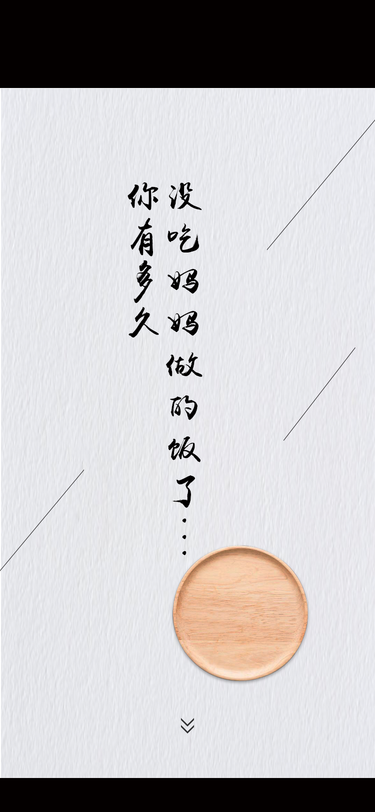 你有多久
没吃妈妈做的饭了...